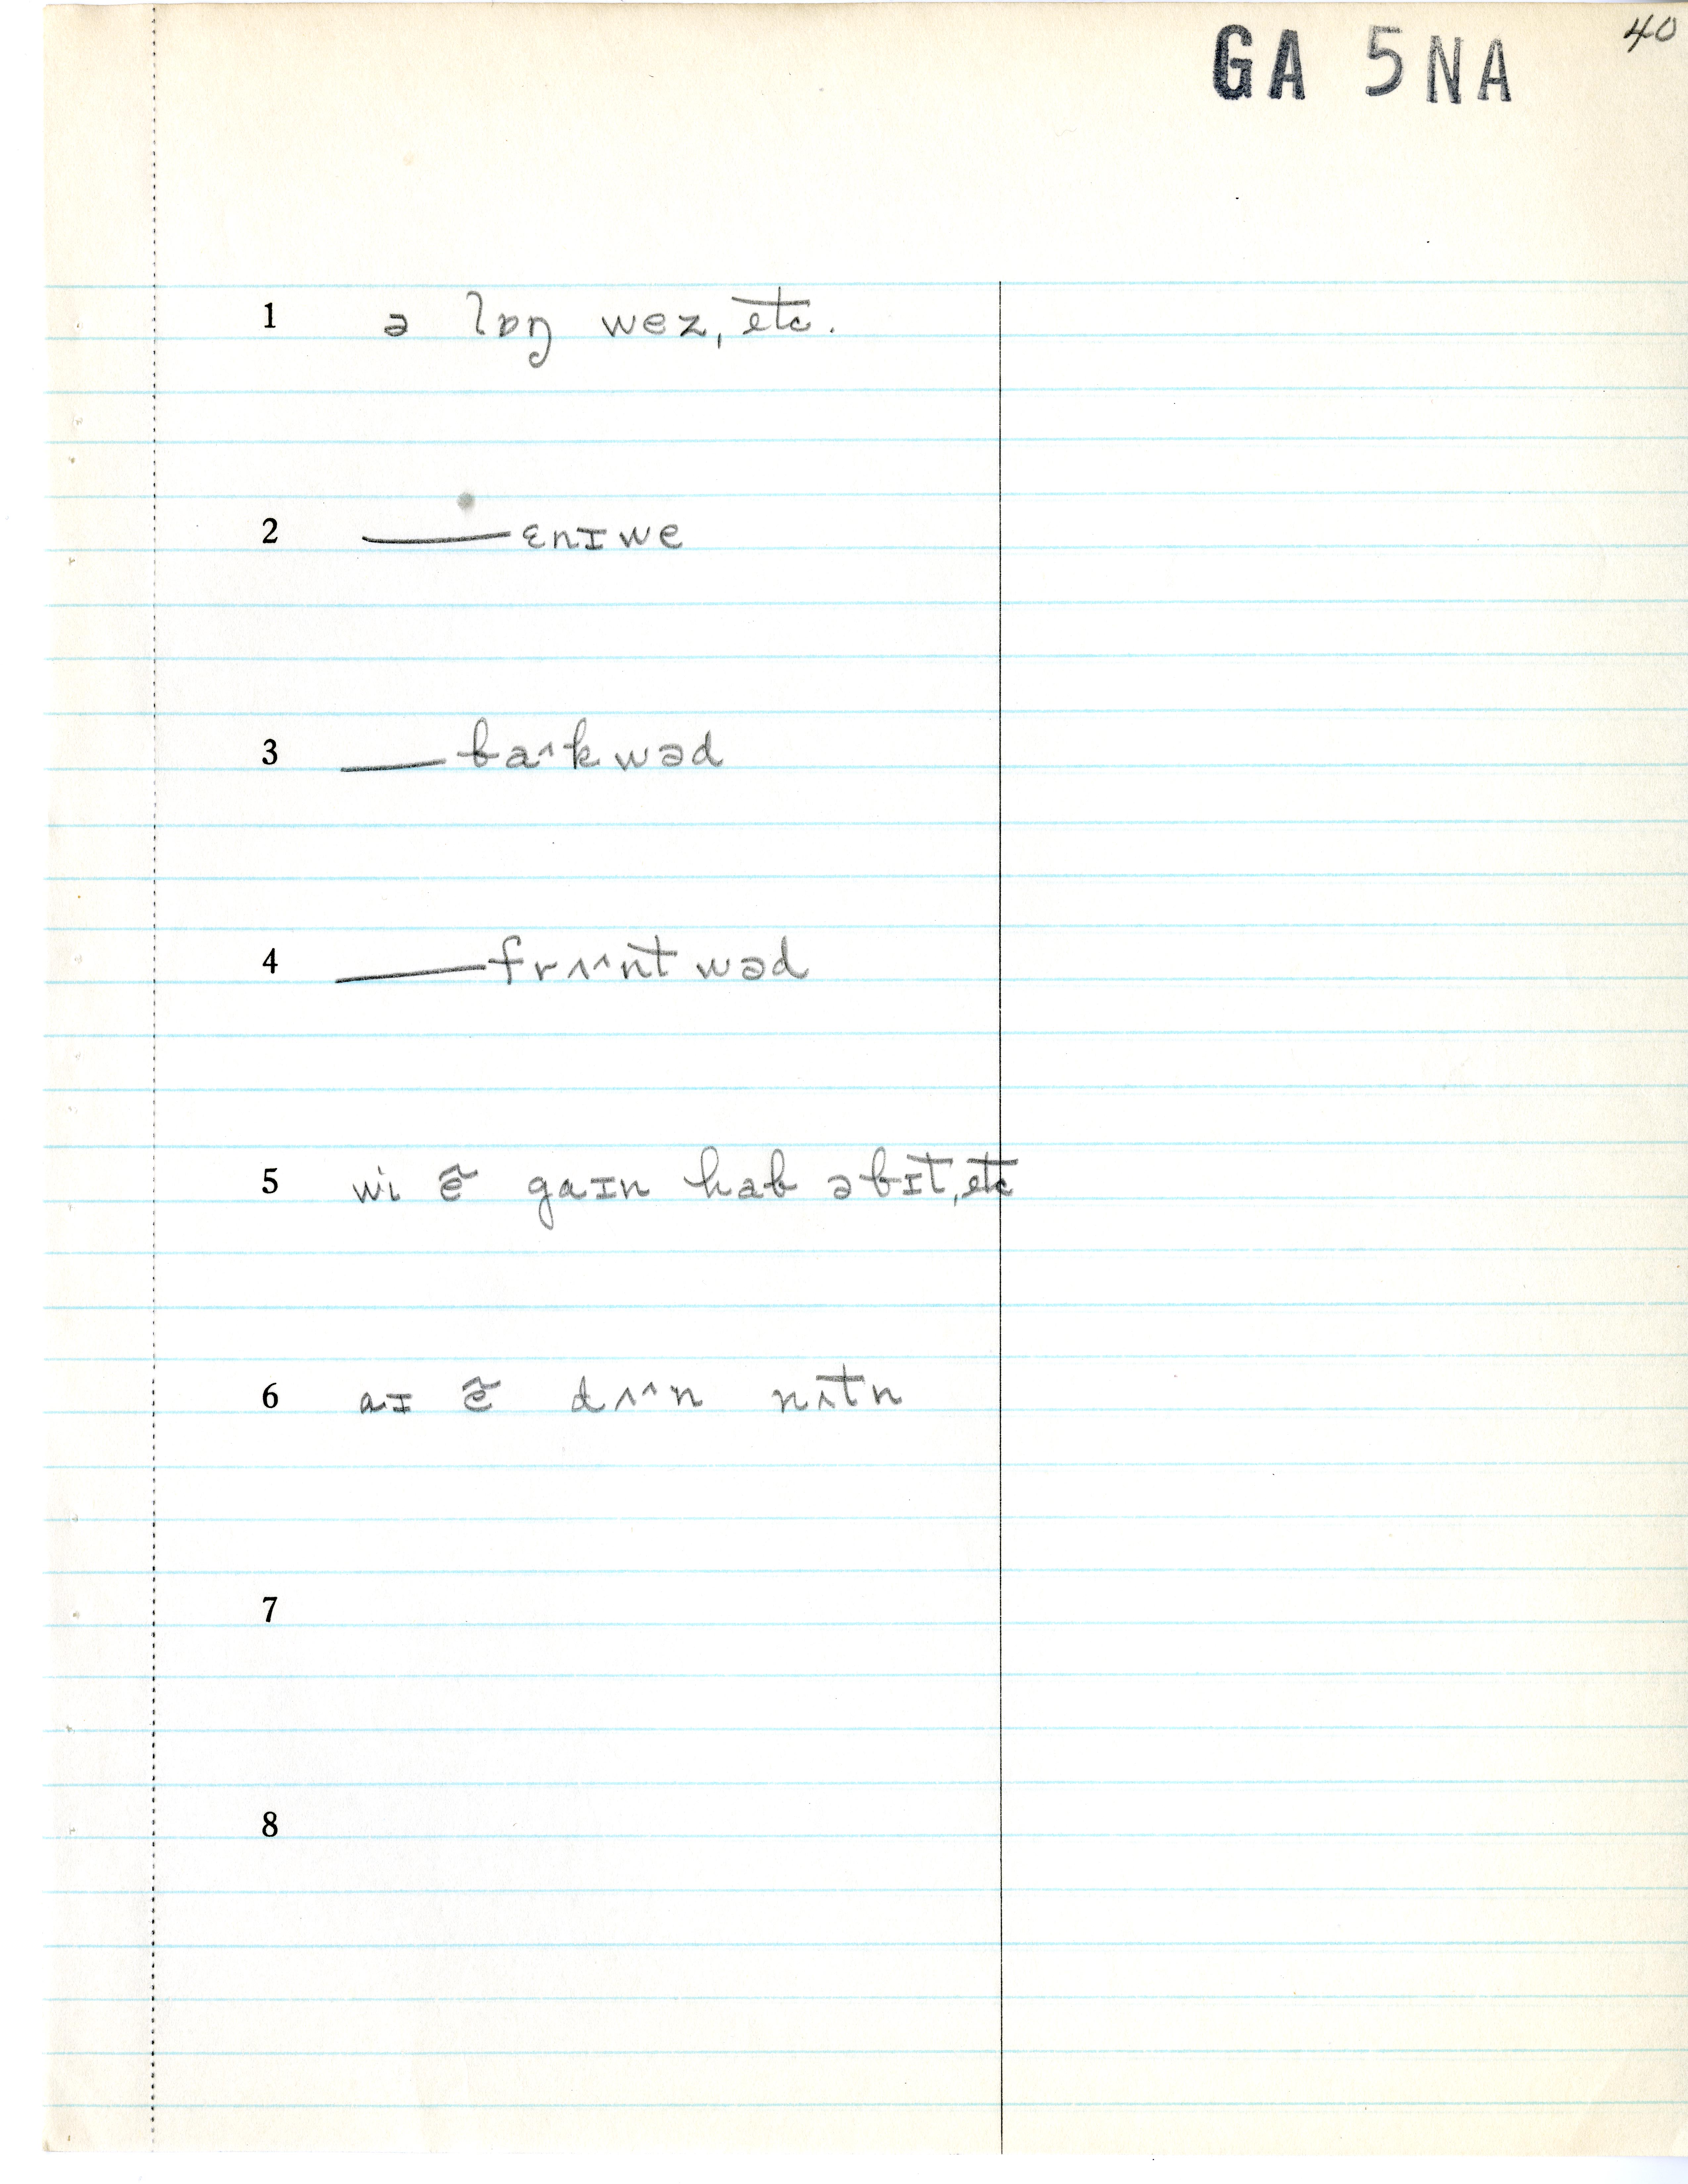 40
GA 5NA
1 ə lɒŋ wez, etc.
2 —— ɛnɪwe
3 —— ba˄kwəd
4 —— frʌ˄nt wəd
5 wi ẽ gaɪn hab əbɪt, etc
6 aɪ ẽ dʌ˄n nʌtn
7
8